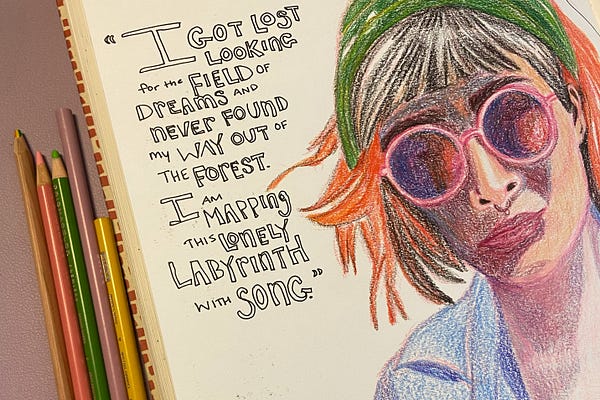 “I GOT LOST
LOOKING
for the FIELD OF
DREAMS AND
NEVER FOUND
my WAY OUT OF
THE FOREST.
I AM
MAPPING
THIS LONELY
LABYRINTH
WITH SONG.”